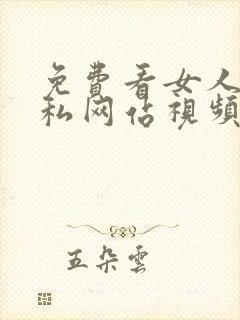 免費看女人
私网估視頻
五朵雲